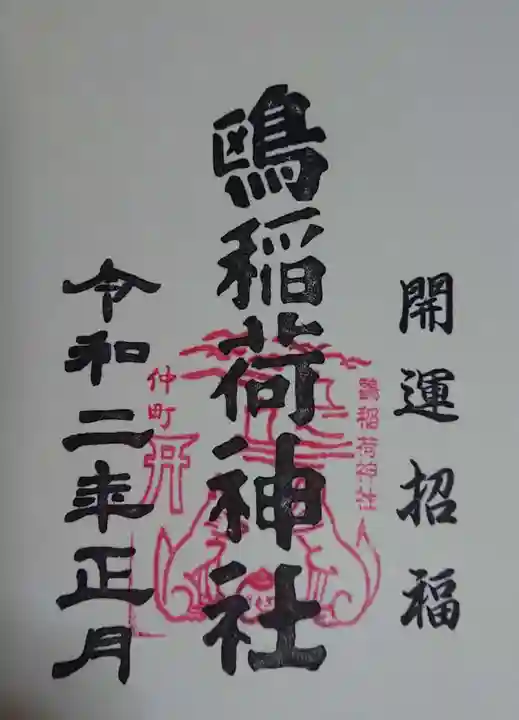 開運招福
鴎稲荷神社
令和二年正月
鷖稲荷神社
仲町